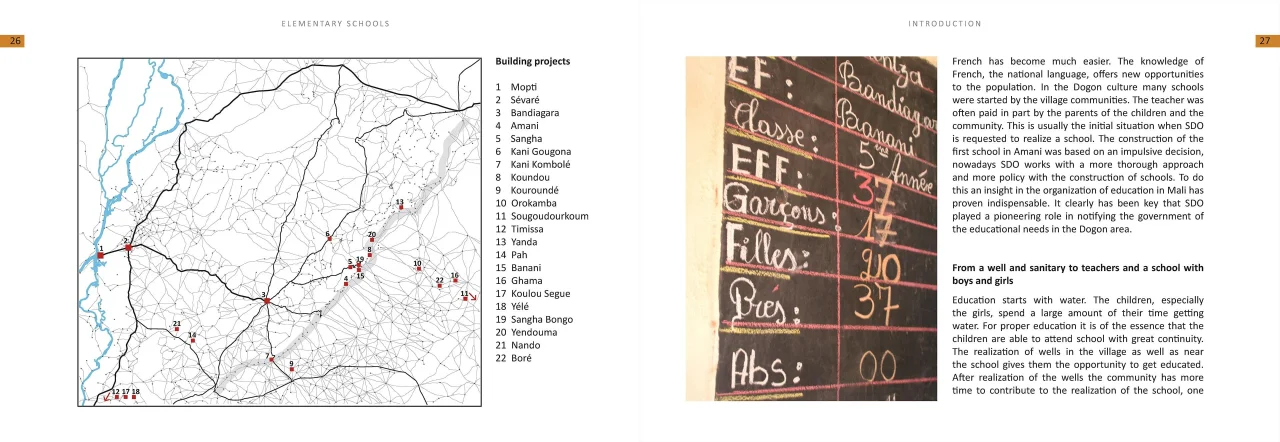 ELEMENTARY SCHOOLS
26
1
2
3
4
5
6
7
8
9
10
11
12 17 18
13
14
15
16
19
20
21
22
Building projects
1 Mopti
2 Sévaré
3 Bandiagara
4 Amani
5 Sangha
6 Kani Gougona
7 Kani Kombolé
8 Koundou
9 Kouroundé
10 Orokamba
11 Sougoudourkoum
12 Timissa
13 Yanda
14 Pah
15 Banani
16 Ghama
17 Koulou Segue
18 Yélé
19 Sangha Bongo
20 Yendouma
21 Nando
22 Boré
INTRODUCTION
27
EF: Bandiagar
Classe: Banani
5 Année
EFF: 37
Garçons: 17
Filles: 20
Prés: 37
Abs: 00
French has become much easier. The knowledge of
French, the national language, offers new opportunities
to the population. In the Dogon culture many schools
were started by the village communities. The teacher was
often paid in part by the parents of the children and the
community. This is usually the initial situation when SDO
is requested to realize a school. The construction of the
first school in Amani was based on an impulsive decision,
nowadays SDO works with a more thorough approach
and more policy with the construction of schools. To do
this an insight in the organization of education in Mali has
proven indispensable. It clearly has been key that SDO
played a pioneering role in notifying the government of
the educational needs in the Dogon area.
From a well and sanitary to teachers and a school with
boys and girls
Education starts with water. The children, especially
the girls, spend a large amount of their time getting
water. For proper education it is of the essence that the
children are able to attend school with great continuity.
The realization of wells in the village as well as near
the school gives them the opportunity to get educated.
After realization of the wells the community has more
time to contribute to the realization of the school, one